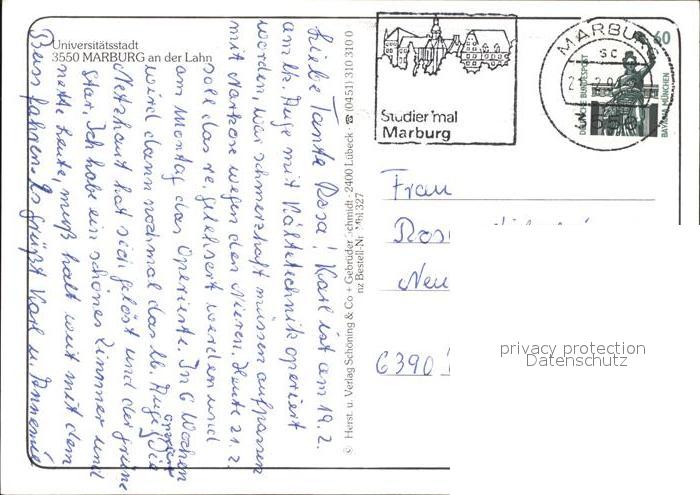 Universitätsstadt
3550 MARBURG an der Lahn
Liebe Tante Rosa! Karl ist am 19. 2.
am lk. Auge mit Kältetechnik operiert
worden, war schmerzhaft müssen aufpassen
mit Narkose wegen den Nieren. Heute 21. 2.
soll das re. gelasert werden und
am Montag das Operierte. In 6 Wochen
wird dann nochmal das lk. Auge operiert. Die
Netzhaut hat sich gelöst und der grüne
Star. Ich habe ein schönes Zimmer und
nette Leute, muß halt weit mit dem
Bus fahren. Es grüßt Karl u. Annemie
© Herst. u. Verlag Schöning & Co + Gebrüder Schmidt · 2400 Lübeck · ☎ (0451) 310 310 0
Bestell-Nr. 327
Studier mal
Marburg
MARBURG
sc
60
DEUTSCHE BUNDESPOST
BAVARIA MÜNCHEN
Frau
Neu
6390
privacy protection
Datenschutz